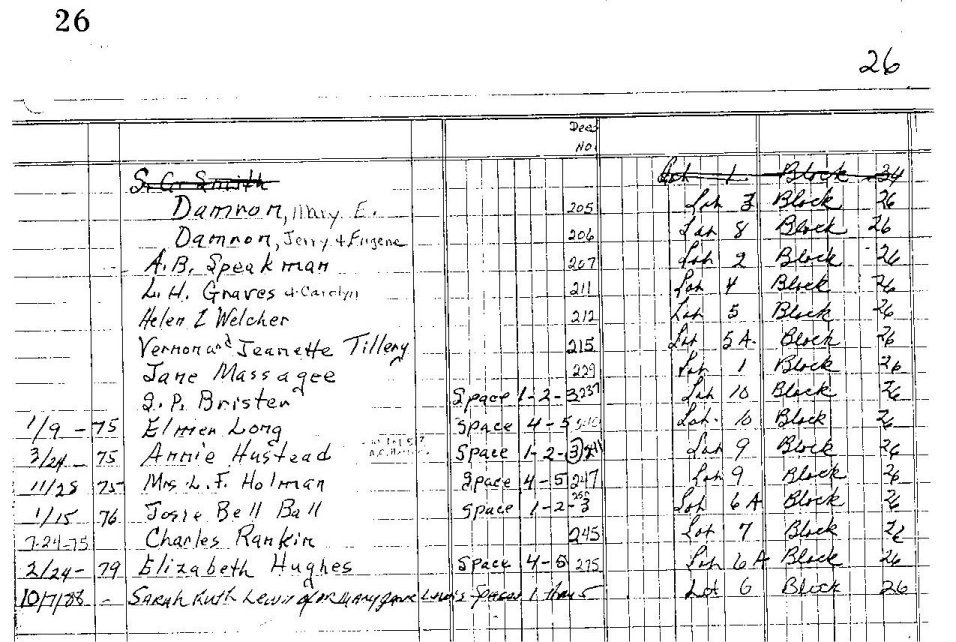 26
26
Deed
No.
S. G. Smith Lot 1 Block 34
Damron, Mary E. 205 Lot 3 Block 26
Damron, Jerry & Eugene 206 Lot 8 Block 26
A.B. Speakman 207 Lot 2 Block 26
L.H. Graves & Carolyn 211 Lot 4 Block 26
Helen I Welcher 212 Lot 5 Block 26
Vernon and Jeanette Tillery 215 Lot 5A Block 26
Jane Massagee 229 Lot 1 Block 26
J.P. Brister Space 1-2-3 237 Lot 10 Block 26
1/9 - 75 Elmer Long Space 4-5 Lot 10 Block 26
3/24 - 75 Annie Hustead Space 1-2-3 Lot 9 Block 26
11/25 75 Mrs L.F. Holman Space 4-5 247 Lot 9 Block 26
1/15 76 Josie Bell Ball Space 1-2-3 Lot 6A Block 26
7-24-75 Charles Rankin 245 Lot 7 Block 26
2/24 - 79 Elizabeth Hughes Space 4-5 275 Lot 6A Block 26
10/7/88 - Sarah Ruth Lewis or Mary Jane Lewis Spaces 1 thru 5 Lot 6 Block 26